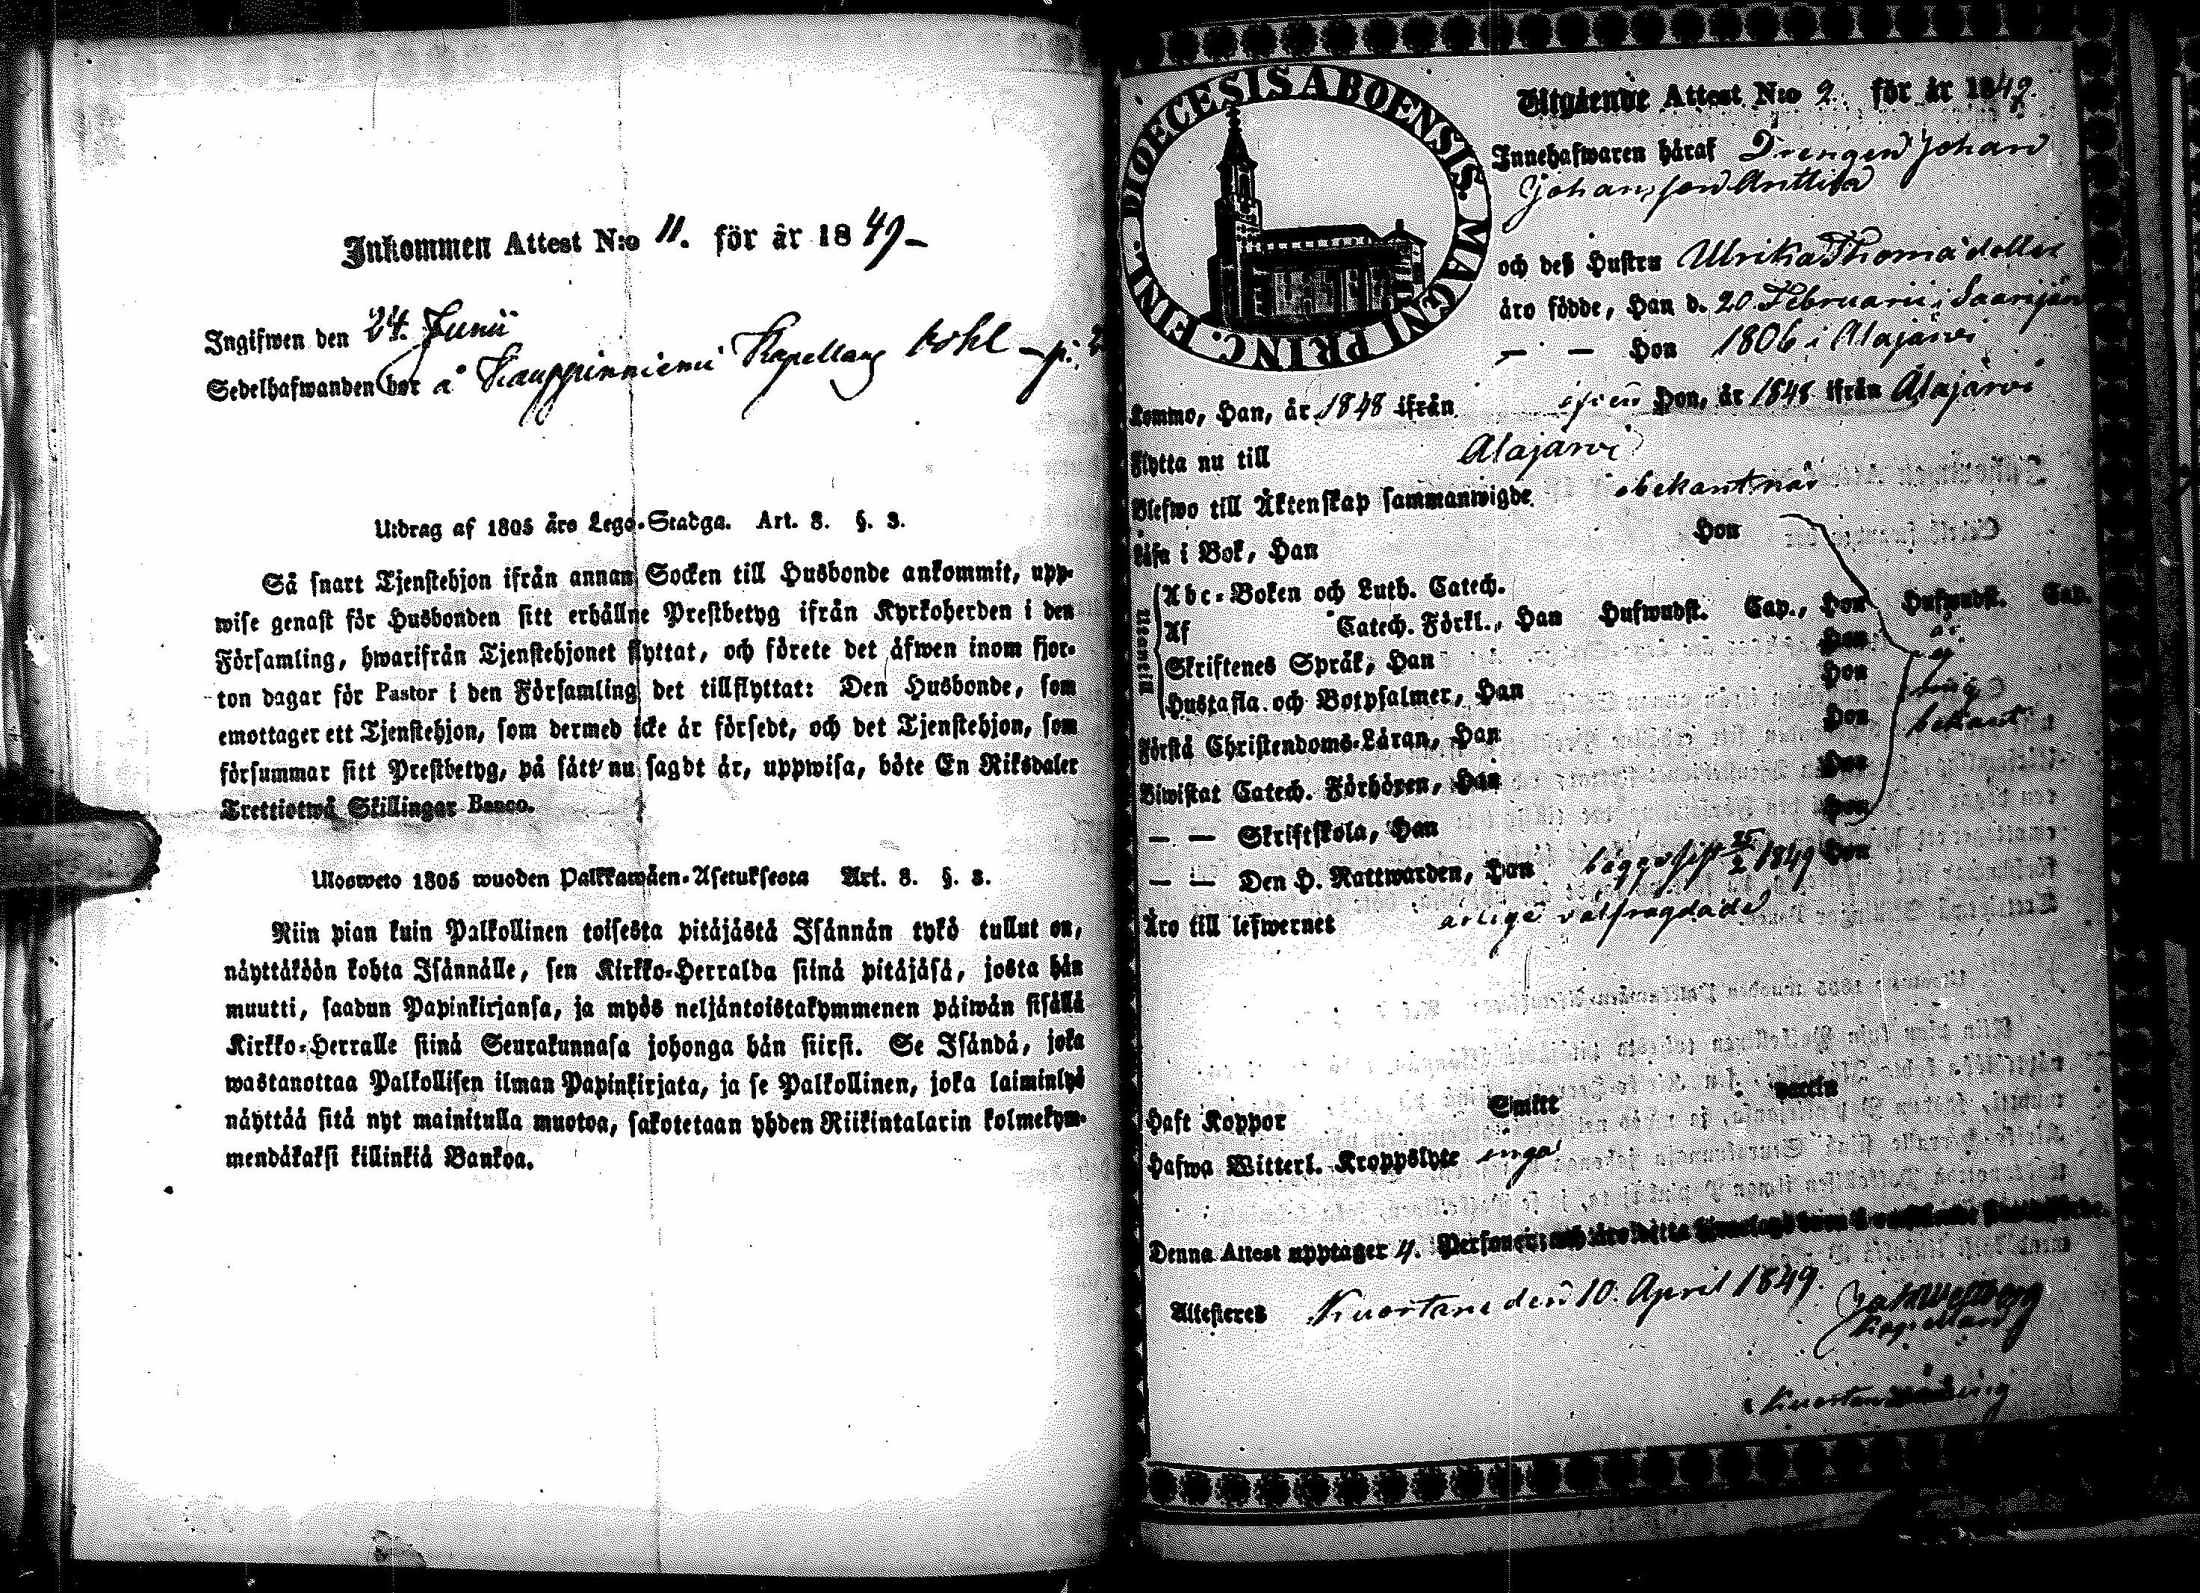 Inkommen Attest N:o 11. för år 1849 –
Ingifwen den 24. Junii
Sedelhafwanden bor å Kauppinniemi Kapellans
Utdrag af 1805 års Lego-Stadga. Art. 8. §. 3.
Så snart Tjenstehjon ifrån annan Socken till Husbonde ankommit, upp-
wise genast för Husbonden sitt erhållne Prestbetyg ifrån Kyrkoherden i den
Församling, hwarifrån Tjenstehjonet flyttat, och förete det äfwen inom fjor-
ton dagar för Pastor i den Församling det tillflyttat: Den Husbonde, som
emottager ett Tjenstehjon, som dermed icke är försedt, och det Tjenstehjon, som
försummar sitt Prestbetyg, på sätt nu sagdt är, uppwisa, böte En Riksdaler
Trettiotwå Skillingar Banco.
Ulosweto 1805 wuoden Palkkawäen-Asetuksesta Art. 8. §. 3.
Niin pian kuin Palkollinen toisesta pitäjästä Isännän tykö tullut on,
näyttäköön kohta Isännälle, sen Kirkko-Herralda siinä pitäjäsä, josta hän
muutti, saadun Papinkirjansa, ja myös neljäntoistakymmenen päiwän sisällä
Kirkko-Herralle siinä Seurakunnasa johonga hän siirsi. Se Isändä, joka
wastanottaa Palkollisen ilman Papinkirjata, ja se Palkollinen, joka laiminlyö
näyttää sitä nyt mainitulla muotoa, sakotetaan yhden Riikintalarin kolmekym-
mendäkaksi killinkiä Bankoa.
DIOECESIS ABOENSIS. MAGNI PRINC. FINL.
Utgående Attest N:o 2. för år 1849.
Innehafwaren häraf Drengen Johan
Johansson Anttila
och deß Hustru Ulrika Thomädotter
äro födde, Han d. 20 Februarii i Saarijärvi
— — Hon 1806 i Alajärvi
Kommo, Han, år 1848 ifrån Hon, år 1848 ifrån Alajärvi
Flytta nu till Alajärvi
Blefwo till Äktenskap sammanwigde obekant när
Läsa i Bok, Han Hon
Utantill
Abc-Boken och Luth. Catech.
Af Catech. Förkl., Han Hufwudst. Cap., Hon Hufwudst. Cap.
Skriftenes Språk, Han Hon är ej
Hustafla och Botpsalmer, Han Hon mig
Förstå Christendoms-Läran, Han Hon bekant
Biwistat Catech. Förhören, Han Hon
— — Skriftskola, Han Hon
— — Den H. Nattwarden, Han begge sist 25/2 1849 Hon
Äro till lefwernet ärlige välfrägdade
Haft Koppor Smitt vaccin
Hafwa Witterl. Kroppslyte inga
Denna Attest upptager 4. Personer
Attesteres Kuortane den 10. April 1849.
Kapellan